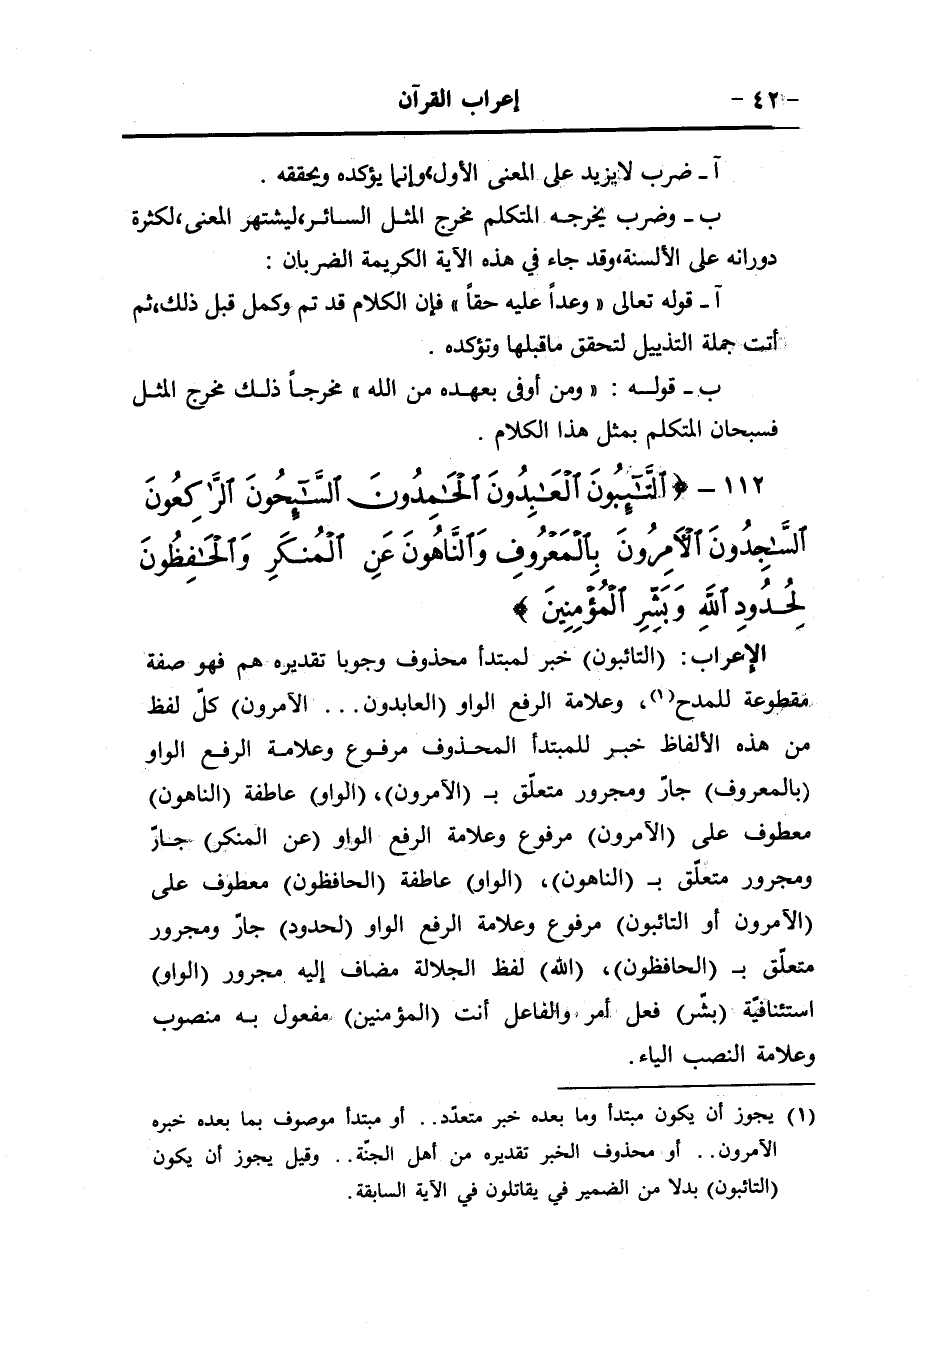 - ٤٢ - إعراب القرآن
آ ـ ضرب لايزيد على المعنى الأول،وإنما يؤكده ويحققه .
ب ـ وضرب يخرجه المتكلم مخرج المثل السائر،ليشتهر المعنى،لكثرة
دورانه على الألسنة،وقد جاء في هذه الآية الكريمة الضربان :
آ ـ قوله تعالى « وعداً عليه حقاً » فإن الكلام قد تم وكمل قبل ذلك،ثم
أتت جملة التذييل لتحقق ماقبلها وتؤكده .
ب ـ قوله : « ومن أوفى بعهده من الله » مخرجاً ذلك مخرج المثل
فسبحان المتكلم بمثل هذا الكلام .
١١٢ - ﴿ ٱلتَّـٰٓئِبُونَ ٱلْعَـٰبِدُونَ ٱلْحَـٰمِدُونَ ٱلسَّـٰٓئِحُونَ ٱلرَّٰكِعُونَ
ٱلسَّـٰجِدُونَ ٱلْـَٔامِرُونَ بِٱلْمَعْرُوفِ وَٱلنَّاهُونَ عَنِ ٱلْمُنكَرِ وَٱلْحَـٰفِظُونَ
لِحُدُودِ ٱللَّهِ وَبَشِّرِ ٱلْمُؤْمِنِينَ ﴾
الإعراب: (التائبون) خبر لمبتدأ محذوف وجوبا تقديره هم فهو صفة
مقطوعة للمدح(١)، وعلامة الرفع الواو (العابدون... الآمرون) كلّ لفظ
من هذه الألفاظ خبر للمبتدأ المحذوف مرفوع وعلامة الرفع الواو
(بالمعروف) جارّ ومجرور متعلّق بـ (الآمرون)، (الواو) عاطفة (الناهون)
معطوف على (الآمرون) مرفوع وعلامة الرفع الواو (عن المنكر) جارّ
ومجرور متعلّق بـ (الناهون)، (الواو) عاطفة (الحافظون) معطوف على
(الآمرون أو التائبون) مرفوع وعلامة الرفع الواو (لحدود) جارّ ومجرور
متعلّق بـ (الحافظون)، (الله) لفظ الجلالة مضاف إليه مجرور (الواو)
استئنافيّة (بشّر) فعل أمر والفاعل أنت (المؤمنين) مفعول به منصوب
وعلامة النصب الياء.
(١) يجوز أن يكون مبتدأ وما بعده خبر متعدّد.. أو مبتدأ موصوف بما بعده خبره
الآمرون.. أو محذوف الخبر تقديره من أهل الجنّة.. وقيل يجوز أن يكون
(التائبون) بدلا من الضمير في يقاتلون في الآية السابقة.